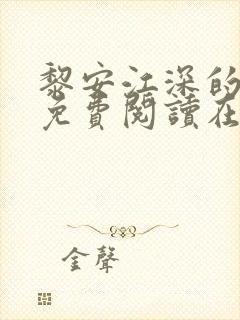 黎安江深的
免費閱讀在
金聲